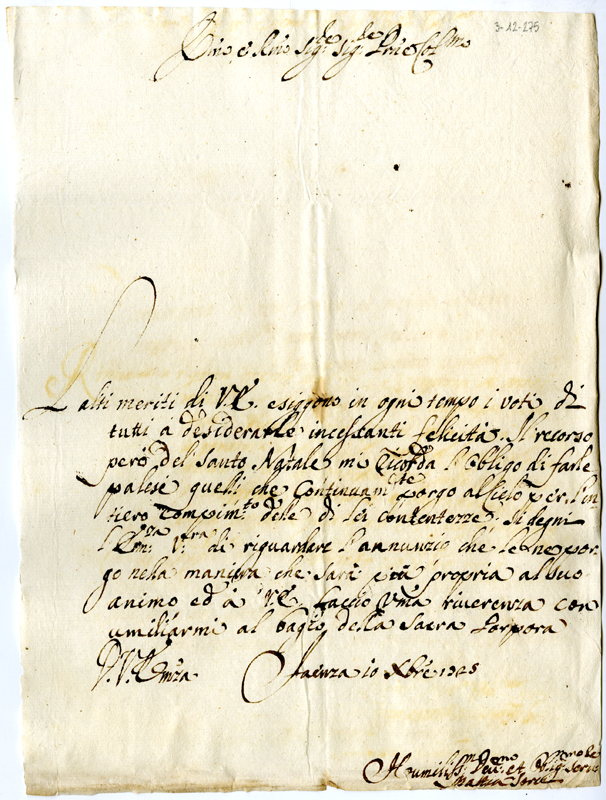 3-12-275
Emo e Rmo Sigre Sigre Prõe Colmo
L'alti meriti di V.E. esiggono in ogni tempo i voti di
tutti a desiderarle incessanti felicità. Il ricorso
però del Santo Natale mi ricorda l'obligo di farle
palese quelli che continuamte porgo al Cielo per l'in
tiero compimto delle di lei contentezze. Si degni
l'Emza Vra di riguardare l'annunzio che le ne por
go nella maniera che sarà più propria al suo
animo ed à V.E. faccio una riverenza con
umiliarmi al bagio della Sacra Porpora
D.V. Emza Faenza 10 Xbre 1725
Humilissmo Devmo et Obligmo Servre
Mattia